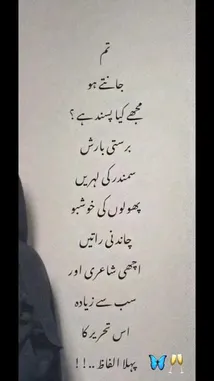 تم
جانتے ہو
مجھے کیا پسند ہے ؟
برستی بارش
سمندر کی لہریں
پھولوں کی خوشبو
چاندنی راتیں
اچھی شاعری اور
سب سے زیادہ
اس تحریر کا
پہلا الفاظ ..!!